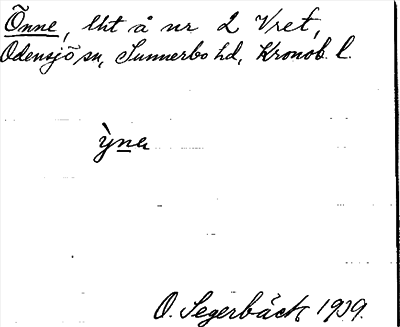 Önne, lht å nr 2 Vret,
Odensjö sn, Sunnerbo hd, Kronob. l.
ỳnа
O. Segerbäck 1939.